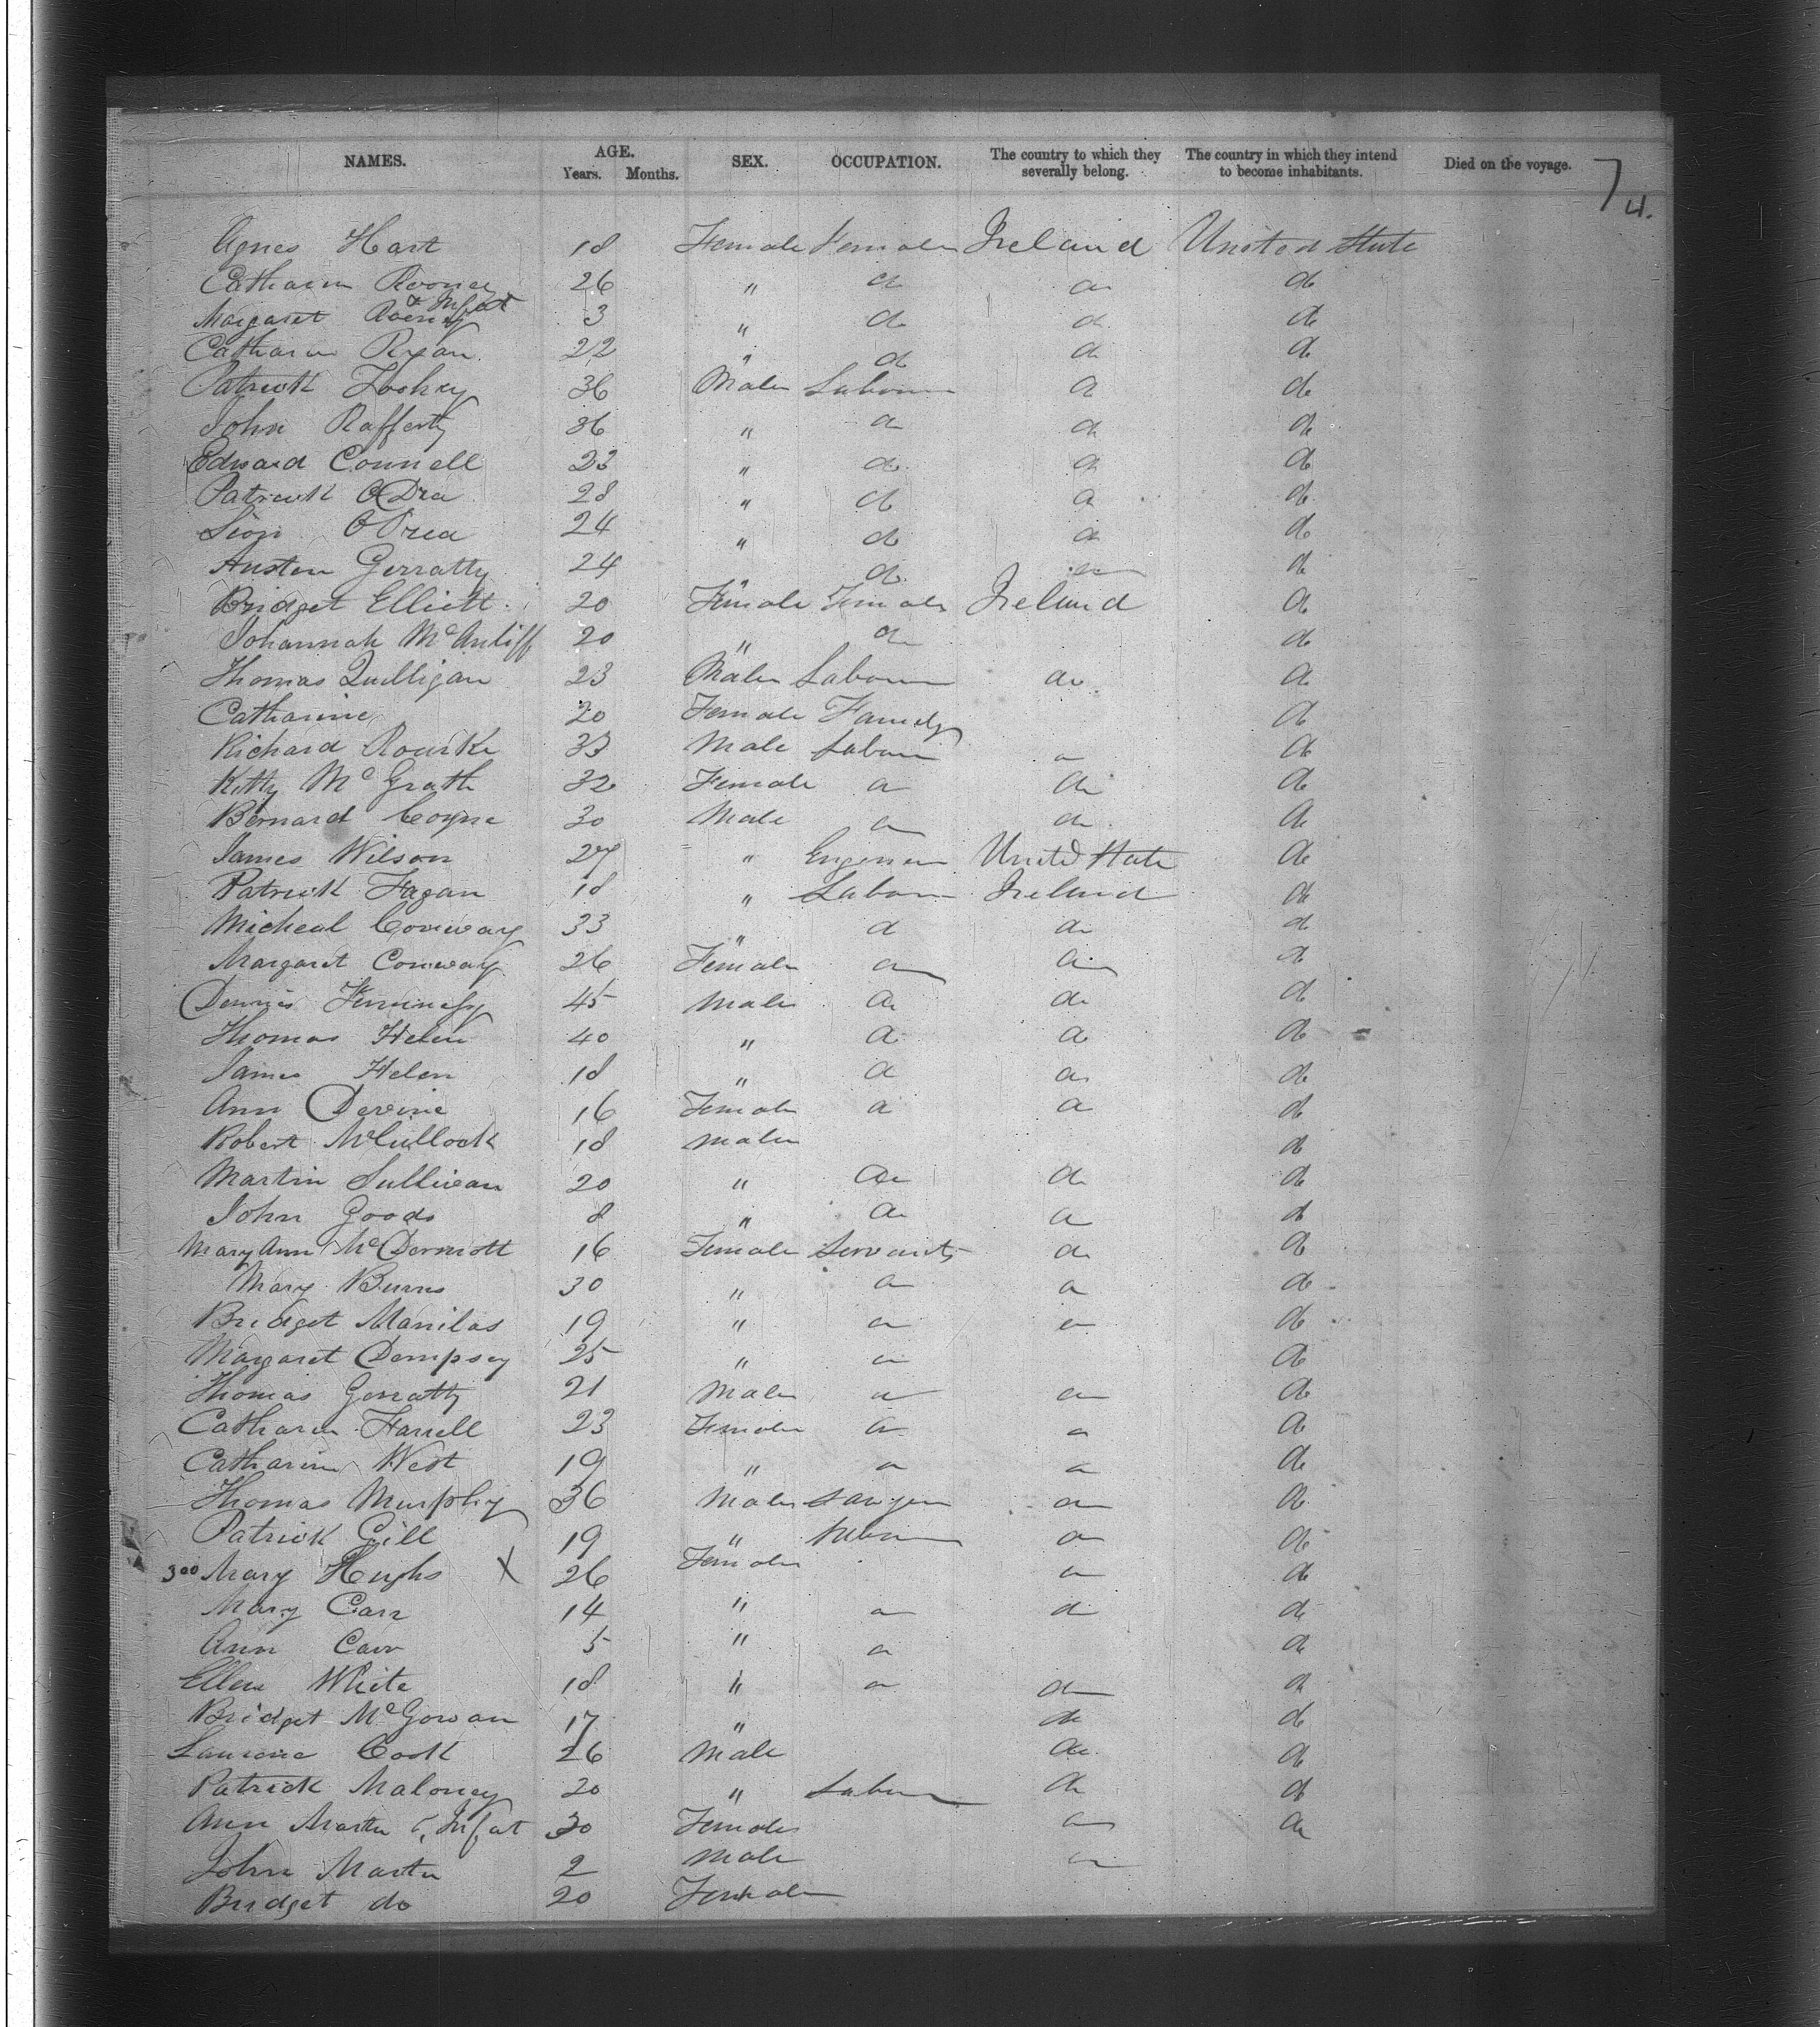 NAMES. AGE. Years. Months. SEX. OCCUPATION. The country to which they severally belong. The country in which they intend to become inhabitants. Died on the voyage. 7
4.
Agnes Hart 18 Female Female Ireland United State
Catharin Rooney 26 " do do do
& Infat
Margaret Rooney 3 " do do do
Catharin Ryan 22 " do do do
Patrick 36 Male Labour do do
John Rafferty 36 " do do do
Edward Connell 23 " do do do
Patrick O Dea 28 " do do do
O Dea 24 " do do do
Austen Gerratty 24 " do do do
Bridget Elliott 20 Female Female Ireland do
Johannah McAuliff 20 " do do
Thomas Quilligan 23 Male Labour do do
Catharine 20 Female Family do
Richard Rourke 33 Male Labour do do
Kitty McGrath 32 Female do do do
Bernard Coyne 30 Male do do do
James Wilson 27 " Engineer United State do
Patrick Fagan 18 " Labour Ireland do
Micheal Conway 33 " do do do
Margaret Conway 26 Female do do do
Dennis 45 Male do do do
Thomas Helen 40 " do do do
James Helen 18 " do do do
Ann Devine 16 Female do do do
Robert McCullock 18 Male do
Martin Sullivan 20 " do do do
John Goods 8 " do do do
Mary Ann McDermott 16 Female Servants do do
Mary Burns 30 " do do do
Bridget Manilas 19 " do do do
Margaret Dempsey 25 " do do
Thomas Gerratty 21 Male do do do
Catharin Farrell 23 Female do do do
Catharine West 19 " do do do
Thomas Murphy 36 Male do do
Patrick Gill 19 " Labour do do
300 Mary Hughs X 26 Female do do
Mary Carr 14 " do do do
Ann Carr 5 " do do
Ellen White 18 " do do do
Bridget McGowan 17 " do do
Laurence Cook 26 Male do do
Patrick Maloney 20 " Labour do do
Ann Martin & Infat 30 Female do do
John Martin 2 Male do
Bridget do 20 Female